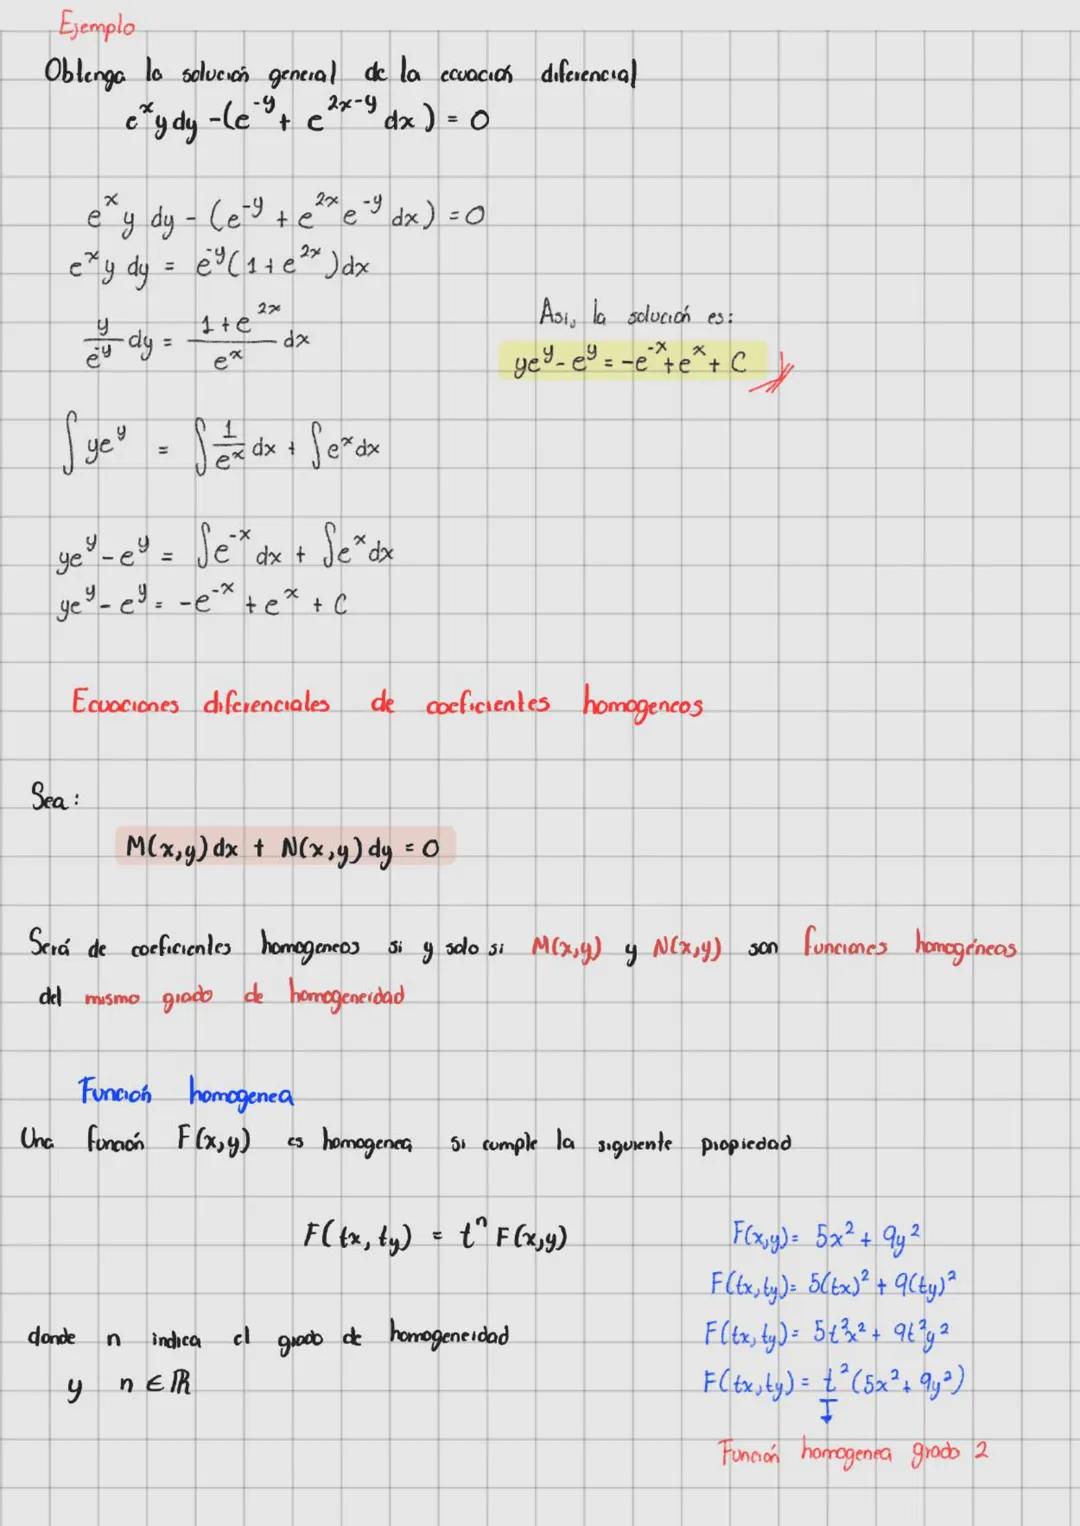 Ejemplo
Obtenga la solución general de la ecuación diferencial
e^x y dy - (e^-y + e^2x-y dx) = 0
e^x y dy - (e^-y + e^2x e^-y dx) = 0
e^x y dy = e^-y (1 + e^2x) dx
y/e^-y dy = 1 + e^2x / e^x dx
∫ye^y = ∫ 1/e^x dx + ∫e^x dx
ye^y - e^y = ∫e^-x dx + ∫e^x dx
ye^y - e^y = -e^-x + e^x + C
Así, la solución es:
ye^y - e^y = -e^-x + e^x + C
Ecuaciones diferenciales de coeficientes homogeneos
Sea:
M(x,y) dx + N(x,y) dy = 0
Será de coeficientes homogeneos si y solo si M(x,y) y N(x,y) son funciones homogéneas
del mismo grado de homogeneidad
Función homogenea
Una función F(x,y) es homogenea si cumple la siguiente propiedad
F(tx, ty) = t^n F(x,y)
donde n indica el grado de homogeneidad
y n ∈ ℝ
F(x,y) = 5x² + 9y²
F(tx,ty) = 5(tx)² + 9(ty)²
F(tx,ty) = 5t²x² + 9t²y²
F(tx,ty) = t²(5x² + 9y²)
Función homogenea grado 2